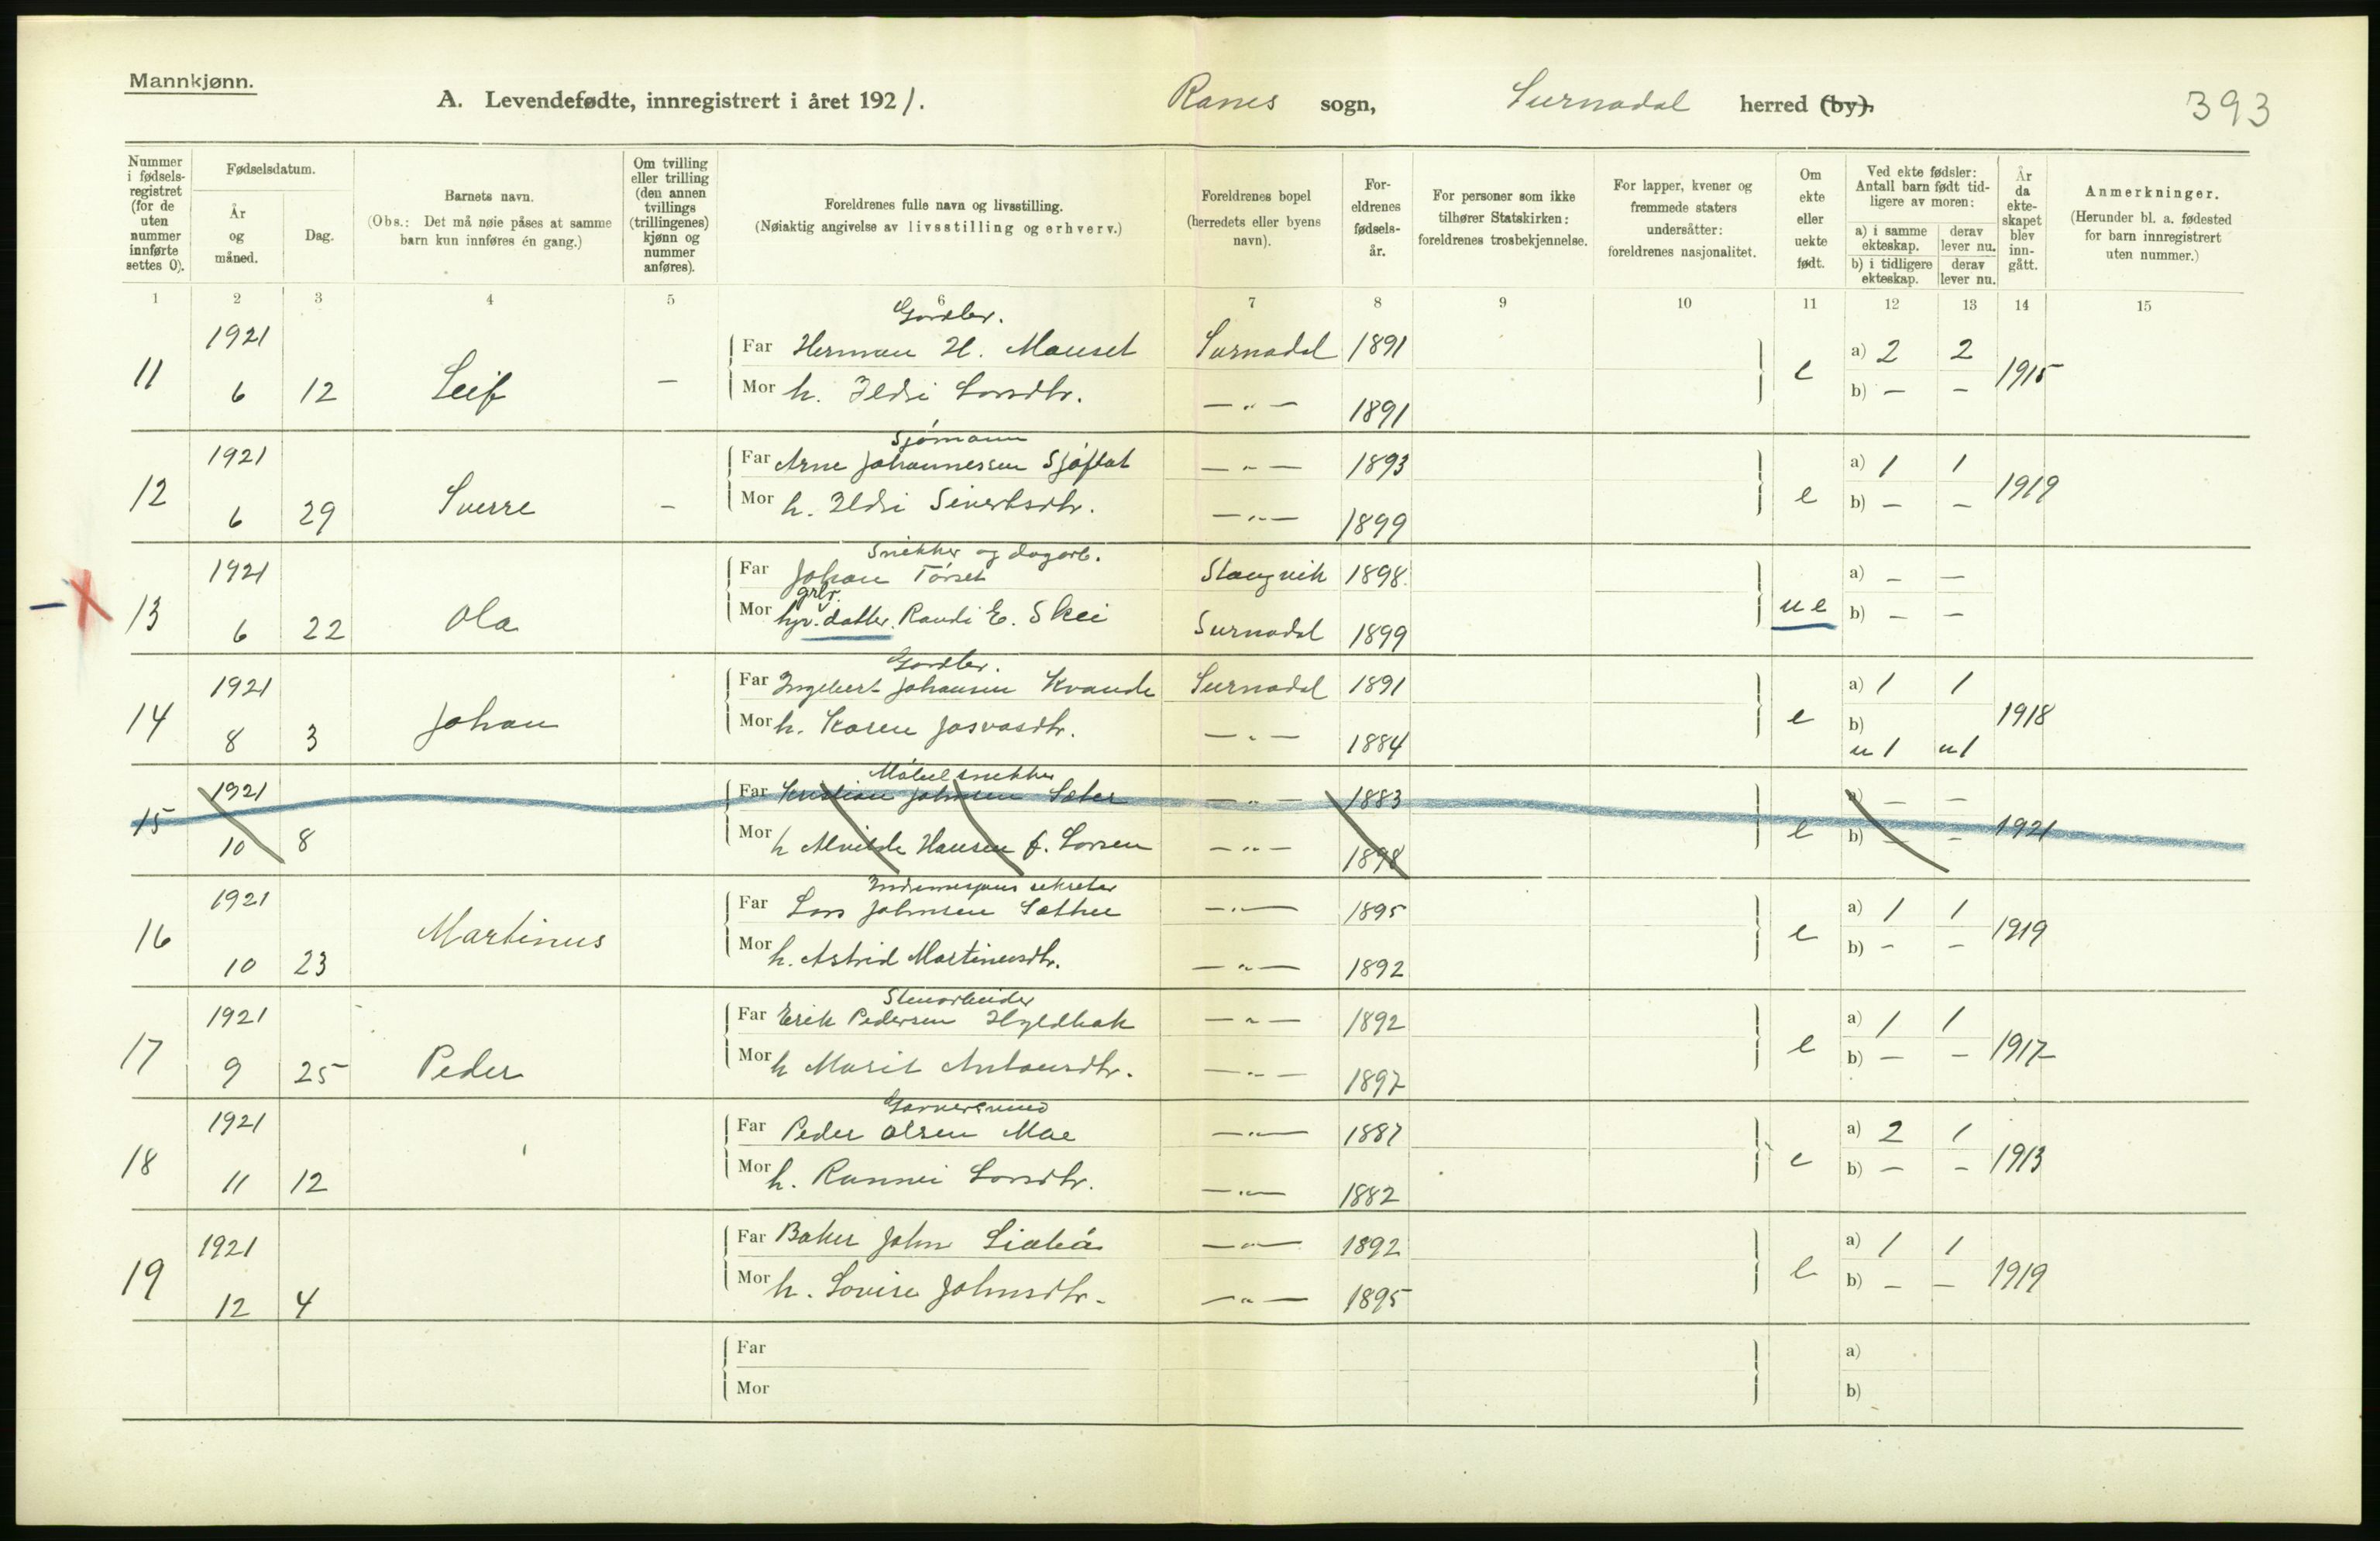 Mannkjønn.
A. Levendefødte, innregistrert i året 1921. Ranes sogn, Surnadal herred (by). 393
Nummer i fødsels-registret (for de uten nummer innførte settes 0).
Fødselsdatum.
År og måned.
Dag.
Barnets navn.
(Obs.: Det må nøie påses at samme barn kun innføres én gang.)
Om tvilling eller trilling (den annen tvillings (trillingenes) kjønn og nummer anføres).
Foreldrenes fulle navn og livsstilling.
(Nøiaktig angivelse av livsstilling og erhverv.)
Foreldrenes bopel (herredets eller byens navn).
For-eldrenes fødsels-år.
For personer som ikke tilhører Statskirken: foreldrenes trosbekjennelse.
For lapper, kvener og fremmede staters undersåtter: foreldrenes nasjonalitet.
Om ekte eller uekte født.
Ved ekte fødsler: Antall barn født tid-ligere av moren:
a) i samme ekteskap. derav lever nu.
b) i tidligere ekteskap. derav lever nu.
År da ekte-skapet blev inn-gått.
Anmerkninger.
(Herunder bl. a. fødested for barn innregistrert uten nummer.)
1 2 3 4 5 6 7 8 9 10 11 12 13 14 15
Gardbr.
1921 Far Herman H. Mauset Surnadal 1891 a) 2 2
11 6 12 Leif – Mor h. Ildri Larsdtr. — „ — 1891 e b) – – 1915
Sjømann
1921 Far Arne Johannessen Sjøflot — „ — 1893 a) 1 1
12 6 29 Sverre – Mor h. Ildri Sivertsdtr. — „ — 1899 e b) – – 1919
Snekker og dagarb.
1921 Far Johan Tørset Stangvik 1898 a) – –
grbr.
13 6 22 Ola Mor hjv. datter. Randi E. Skei Surnadal 1899 ue b) – –
Gardbr.
1921 Far Ingebert Johansen Kvande Surnadal 1891 a) 1 1
14 8 3 Johan Mor h. Karen Josvasdtr. — „ — 1884 e b) u 1 u 1 1918
Møbelsnekker
1921 Far Kristian Johnsen Sæter — „ — 1883 a) – –
15 10 8 Mor h Alvilde Hansen f. Larsen — „ — 1898 e b) – – 1921
Indremisjons sekretær
1921 Far Lars Johnsen Sæther — „ — 1895 a) 1 1
16 10 23 Martinus Mor h. Astrid Martinusdtr. — „ — 1892 e b) – – 1919
Stenarbeider
1921 Far Erik Pedersen Hyldbak — „ — 1892 a) 1 1
17 9 25 Peder Mor h Marit Antonsdtr. — „ — 1897 e b) – – 1917
1921 Far Peder Olsen Moe — „ — 1887 a) 2 1
18 11 12 Mor h. Rannei Larsdtr. — „ — 1882 e b) – – 1913
1921 Far Baker John Liabø — „ — 1892 a) 1 1
19 12 4 Mor h. Lovise Johnsdtr. — „ — 1895 e b) – – 1919
Far a)
Mor b)